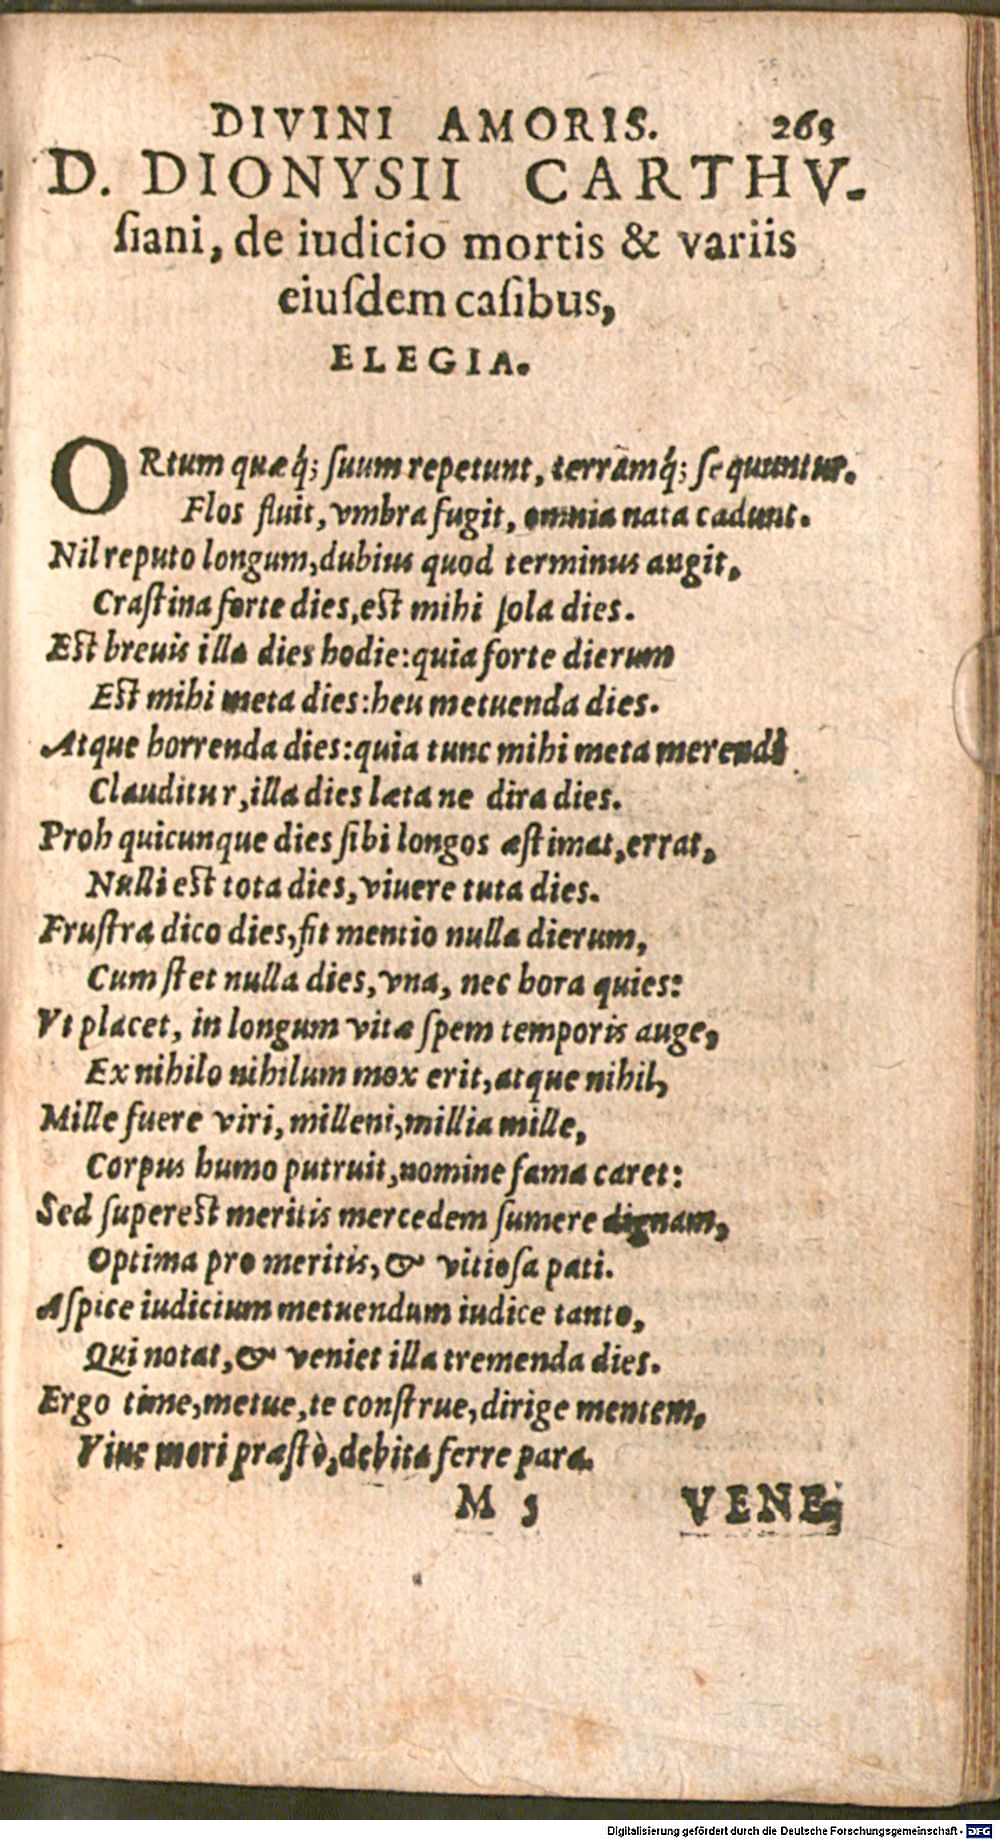 DIVINI AMORIS. 265
D. DIONYSII CARTHV-
ſiani, de iudicio mortis & variis
eiuſdem caſibus,
ELEGIA.
ORtum quæq; ſuum repetunt, terrāmq́; ſequuntur.
Flos fluit, vmbra fugit, omnia nata cadunt.
Nil reputo longum, dubius quod terminus angit,
Craſtina forte dies, eſt mihi ſola dies.
Eſt breuis illa dies hodie: quia forte dierum
Eſt mihi meta dies: heu metuenda dies.
Atque horrenda dies: quia tunc mihi meta merendi
Clauditur, illa dies læta ne dira dies.
Proh quicunque dies ſibi longos æſtimat, errat,
Nulli eſt tota dies, viuere tuta dies.
Fruſtra dico dies, fit mentio nulla dierum,
Cum ſtet nulla dies, vna, nec hora quies:
Vt placet, in longum vitæ ſpem temporis auge,
Ex nihilo nihilum mox erit, atque nihil,
Mille fuere viri, milleni, millia mille,
Corpus humo putruit, nomine fama caret:
Sed ſupereſt meritis mercedem ſumere dignam,
Optima pro meritis, & vitioſa pati.
Aſpice iudicium metuendum iudice tanto,
Qui notat, & veniet illa tremenda dies.
Ergo time, metue, te conſtrue, dirige mentem,
Viue mori præſtò, debita ferre para.
M 5 VENE;
Digitalisierung gefördert durch die Deutsche Forschungsgemeinschaft - DFG